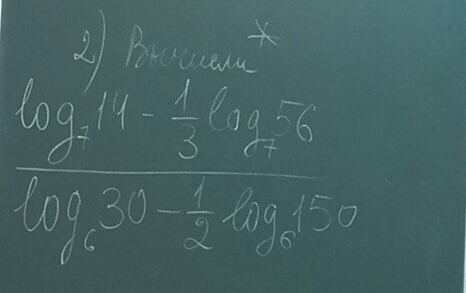 2) Вычисли *
log₇14 - 1/3 log₇56
log₆30 - 1/2 log₆150